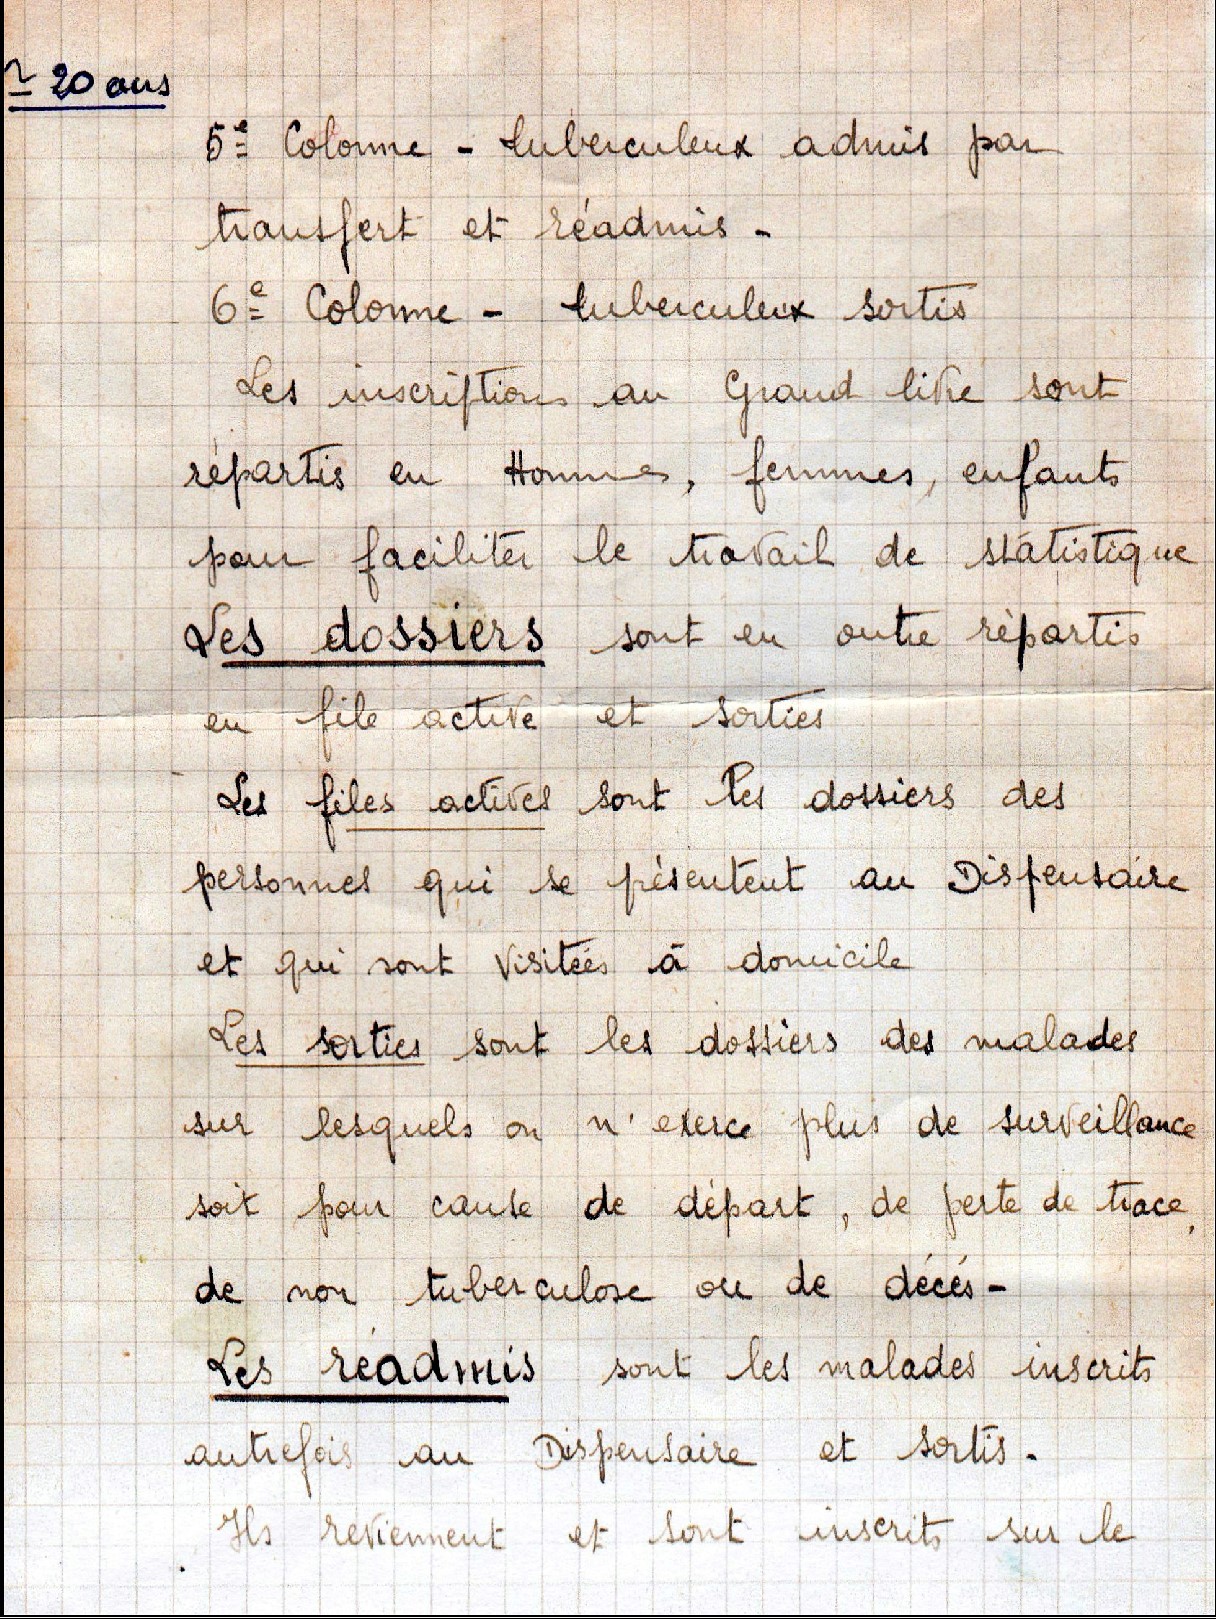 ≃ 20 ans
5e Colonne - tuberculeux admis par
transfert et réadmis -
6e Colonne - tuberculeux sortis
Les inscriptions au Grand livre sont
répartis en Hommes, femmes, enfants
pour faciliter le travail de statistique
Les dossiers sont en outre répartis
en file active et sorties
Les files actives sont les dossiers des
personnes qui se présentent au Dispensaire
et qui sont visitées à domicile
Les sorties sont les dossiers des malades
sur lesquels on n'exerce plus de surveillance
soit pour cause de départ, de perte de trace,
de non tuberculose ou de décés -
Les réadmis sont les malades inscrits
autrefois au Dispensaire et sortis -
Ils reviennent et sont inscrits sur le